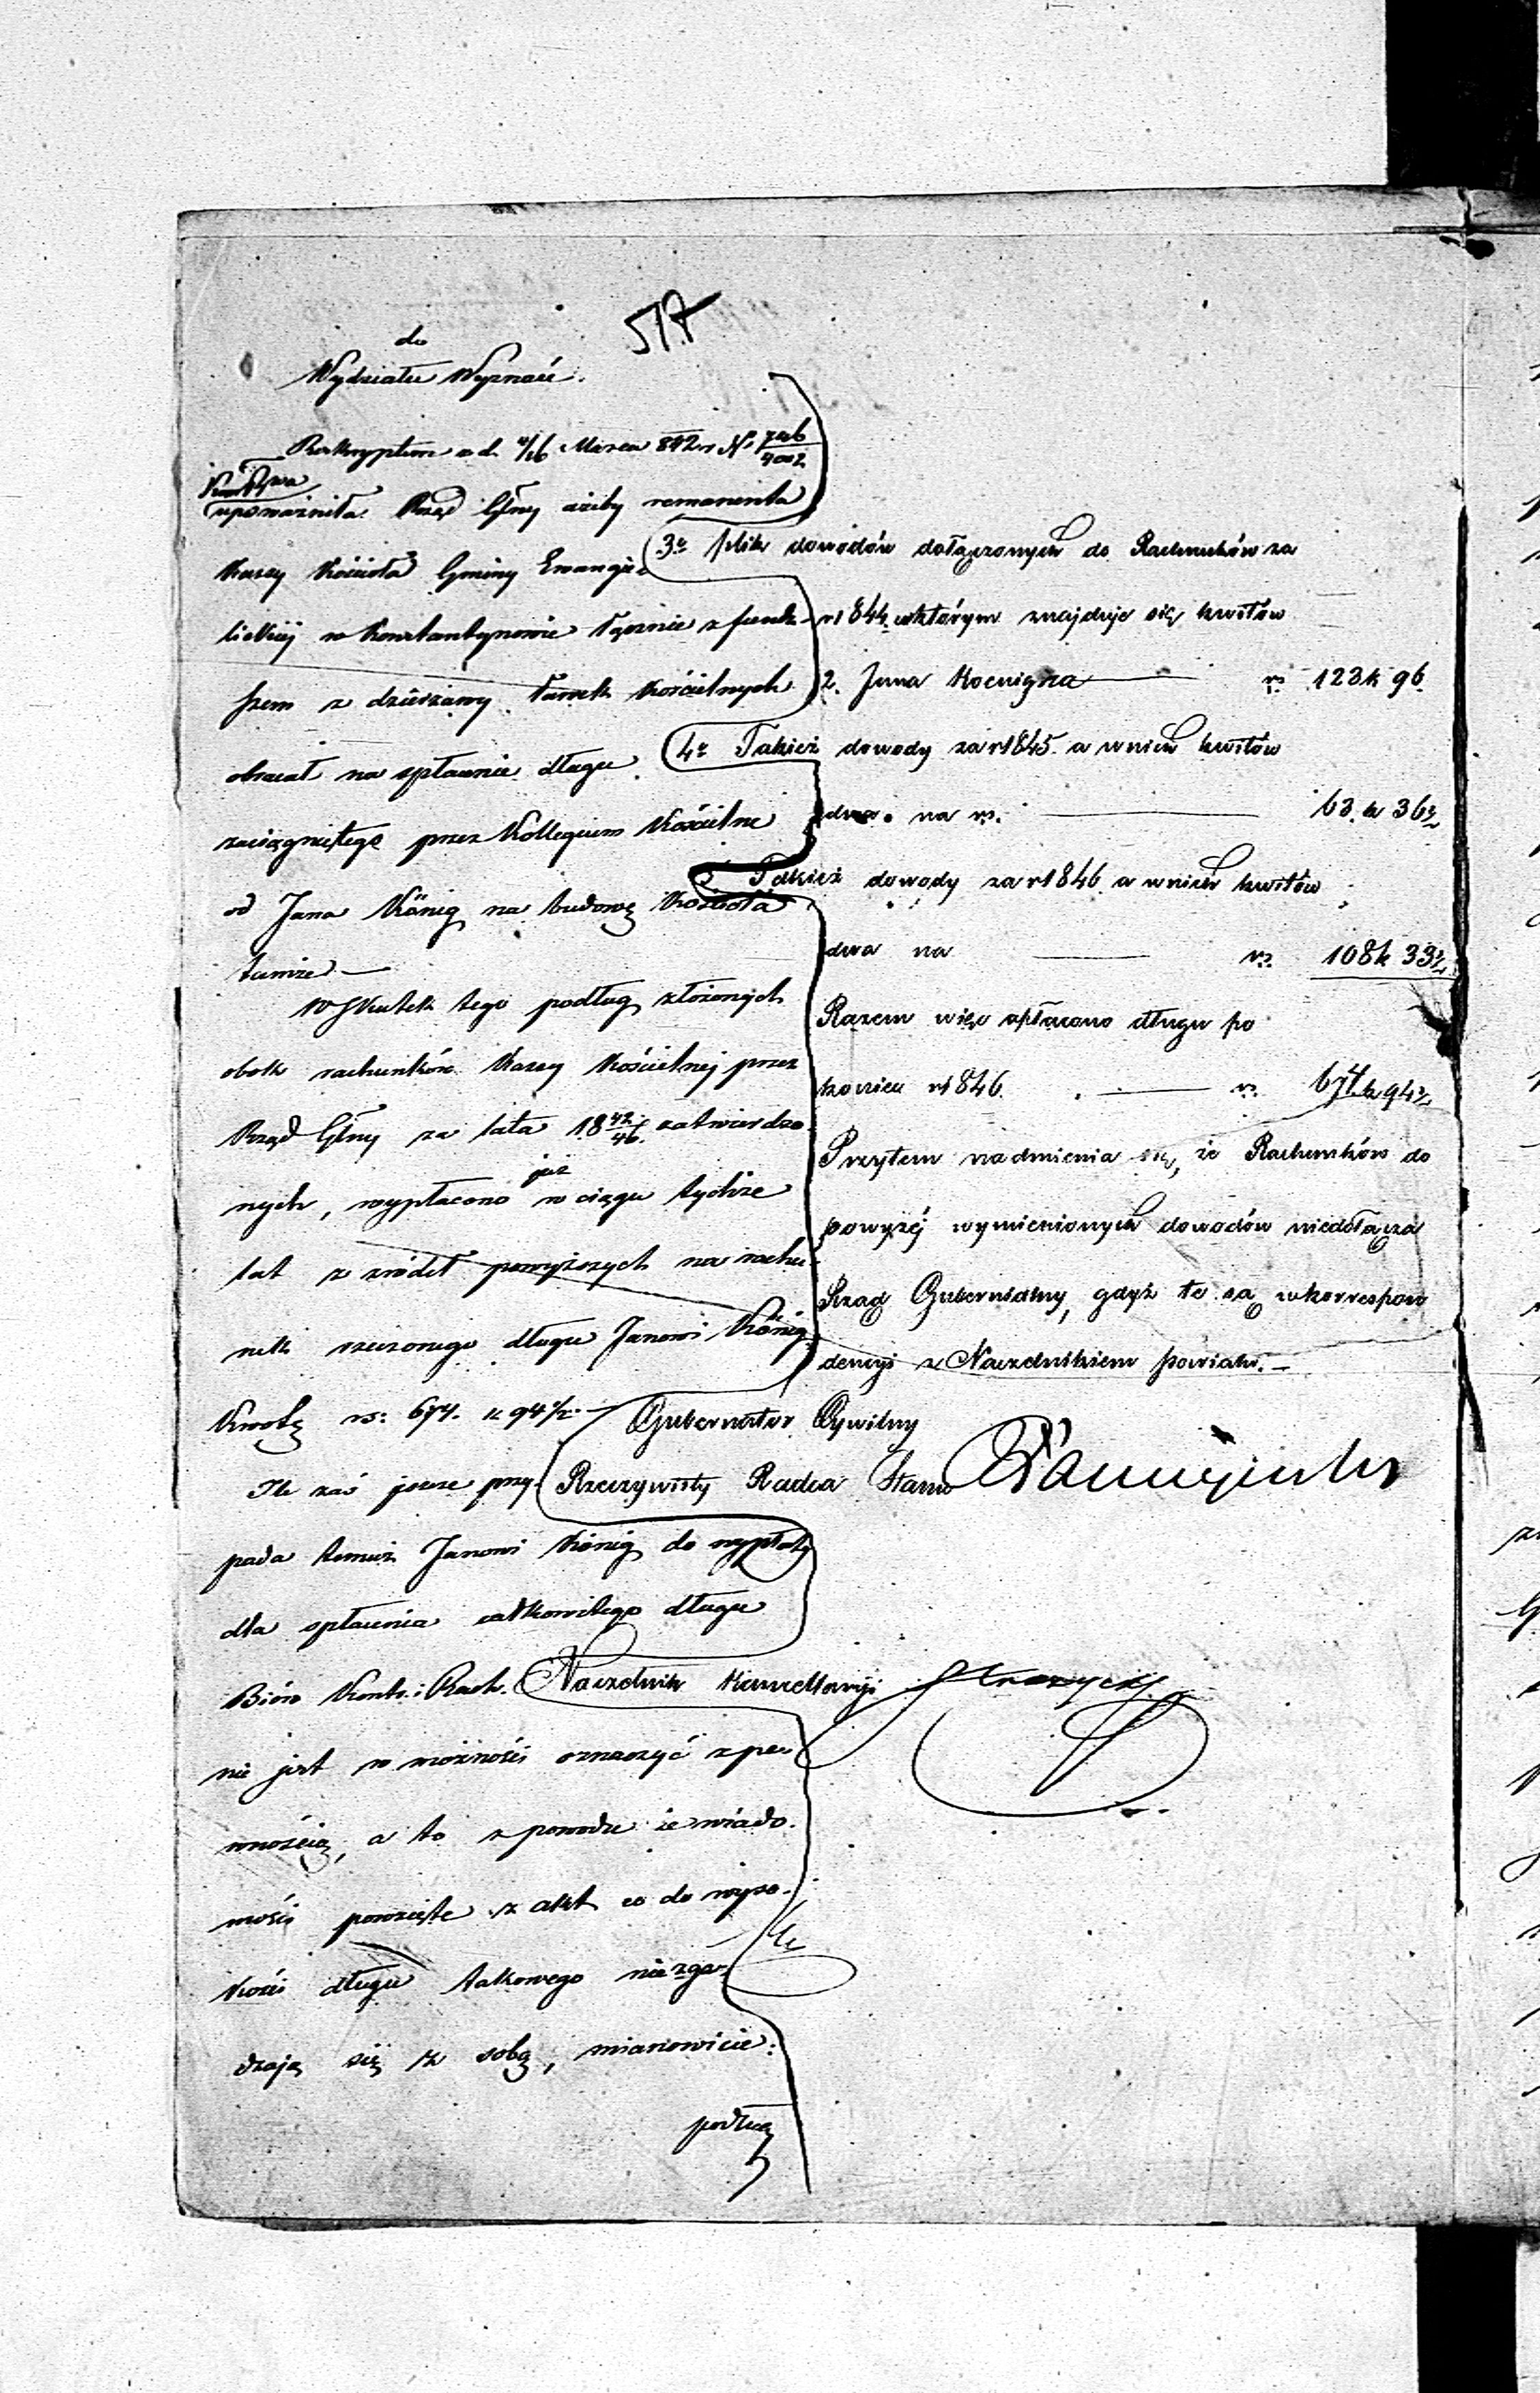 517
do
Wydziału Wyznań.
Reskryptem z d. 4/16 Marca 842 r. N°
upoważniła Rząd Głny ażiby remanenta
Kassy Kościoła Gminy Ewangie-
lickiej w Konstantynowie łącznie z fundu-
szem z dzierżawy ławek Kościelnych
obracał na spłacenie długu
zaciągniętego przez Kollegium Kościelne
od Jana König na budowę Kościoła
tamże —
W skutek tego podług złożonych
obok rachunków Kassy Kościelnej przez
Rząd Głny za lata 18 42/46 zatwierdzo-
nych, wypłacono już w ciągu tychże
lat z źródeł powyższych na rachu-
nek rzeczonego długu Janowi König
Kwotę rs: 674. k 94 1/2. —
Ile zaś jeszcze przy-
pada temuż Janowi König do wypłaty
dla spłacenia całkowitego długu
Bióro Kontr. i Rach.
nie jest w możności oznaczyć z pe-
wnością, a to z powodu że wiado-
mości powzięte z akt co do wyso-
kości długu takowego nie zga-
dzają się z sobą, mianowicie:
podług
3e plik dowodów dołączonych do Rachunków za
r 1844 w którym znajduje się kwitów
2. Jana Koeniga — rs 123 k 96
4e Takież dowody za r 1845. a w nich kwitów
dwa. na rs. — 63. k 36 1/2
Takież dowody za r 1846 a w nich kwitów
dwa na — rs. 108 k 33 1/2
Razem więc spłacono długu po
koniec r 1846. — rs. 674 k 94 1/2
Przytem nadmienia się, że Rachunków do
powyżéj wymienionych dowodów niedołącza
Rząd Gubernialny, gdyż te są w korrespon
dencyi z Naczelnikiem powiatu. —
Gubernator Cywilny
Rzeczywisty Radca Stanu
Naczelnik Kancellaryi